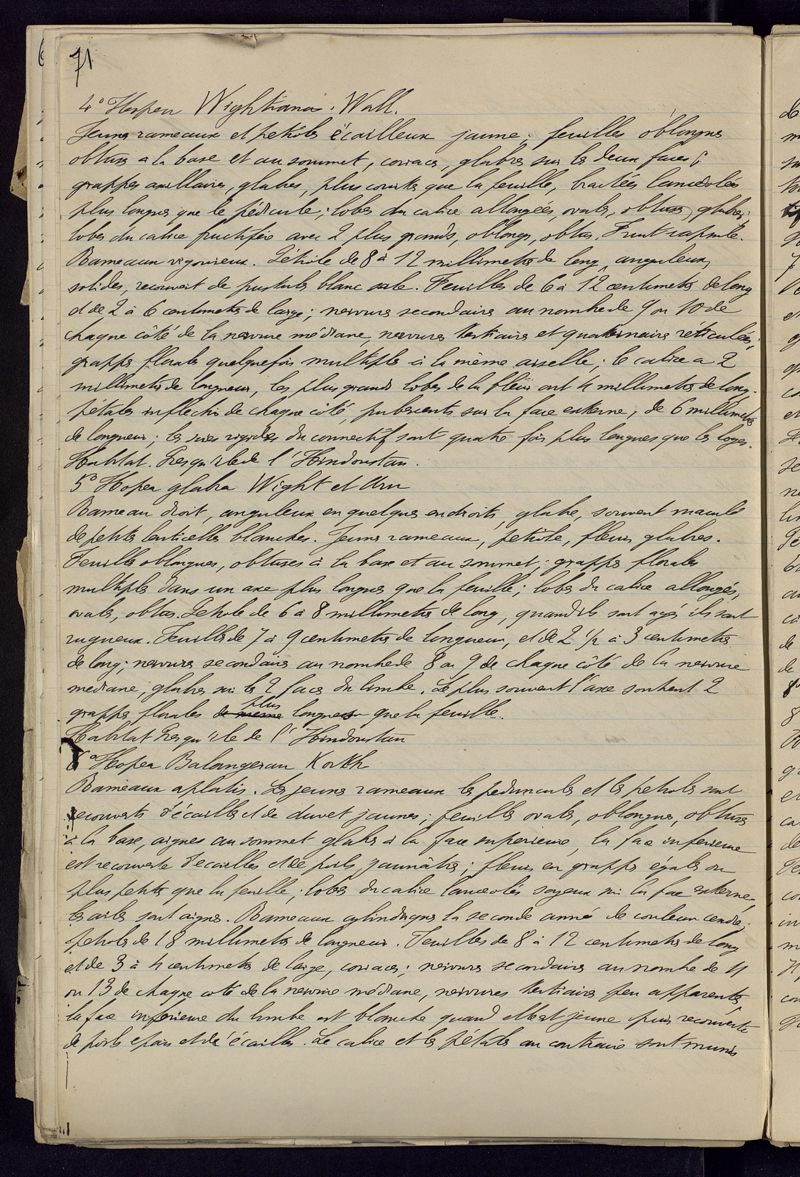 71
4° Hopea Wightiana. Wall.
Jeunes rameaux et petioles écailleux jaune; feuilles oblongues
obtuses à la base et au sommet, coriaces, glabres sur les deux faces;
grappes axillaires, glabres, plus courtes que la feuille, bractées lancéolées
plus longues que le pédicule; lobes du calice allongées, ovales, obtus, glabres;
lobes du calice fructifère avec 2 plus grands, oblongs, obtus. Fruit
Rameaux vigoureux. Pétiole de 8 à 12 millimetres de long, anguleux,
solides, recouvert de pustules blanc sale. Feuilles de 6 à 12 centimetres de long
et de 2 à 6 centimetres de large; nervures secondaires au nombre de 9 ou 10 de
chaque côté de la nervure médiane, nervures tertiaires et quaternaires reticulées;
grappes florales quelquefois multiples à la même aisselle; le calice a 2
millimetres de longueur, les plus grands lobes de la fleur ont 4 millimetres de long.
pétales inflechis de chaque côté, pubescents sur la face externe, de 6 millimetres
de longueur; les soies rigides du connectif sont quatre fois plus longues que les loges.
Habitat. Presqu'ile de l'Hindoustan.
5° Hopea glabra Wight et Arn
Rameau droit, anguleux en quelques endroits, glabre, souvent maculé
de petites lenticelles blanches. Jeunes rameaux, petiole, fleurs glabres.
Feuilles oblongues, obtuses à la base et au sommet; grappes florales
multiples dans un axe plus longues que la feuille; lobes du calice allongés,
ovales, obtus. Petiole de 6 à 8 millimetres de long, quand ils sont agés ils sont
rugueux. Feuilles de 7 à 9 centimetres de longueur, et de 2 1/2 à 3 centimetres
de long; nervures secondaires au nombre de 8 ou 9 de chaque côté de la nervure
mediane, glabres sur les 2 faces du limbe. Le plus souvent l'axe soutient 2
grappes florales de même plus longues que la feuille.
Habitat Presqu'ile de l'Hindoustan
6° Hopea Balangeran Korth
Rameaux aplatis. Les jeunes rameaux les pedoncules et les petioles sont
recouverts d'écailles et de duvet jaunes; feuilles ovales, oblongues, obtuses
à la base, aigues au sommet glabres à la face superieure, la face inferieure
est recouverte d'écailles et de poils jaunâtres; fleurs en grappes égales ou
plus petites que la feuille; lobes du calice lancéolés soyeux sur la face externe,
les ailes sont aigues. Rameaux cylindriques la seconde année de couleur cendre;
petioles de 18 millimetres de longueur. Feuilles de 8 à 12 centimetres de long
et de 3 à 4 centimetres de large, coriaces; nervures secondaires au nombre de 11
ou 13 de chaque coté de la nervure médiane, nervures tertiaires peu apparentes,
la face inferieure du limbe est blanche quand elle est jeune puis recouverte
de poils épais et d'écailles. Le calice et les pétales au contraire sont munis